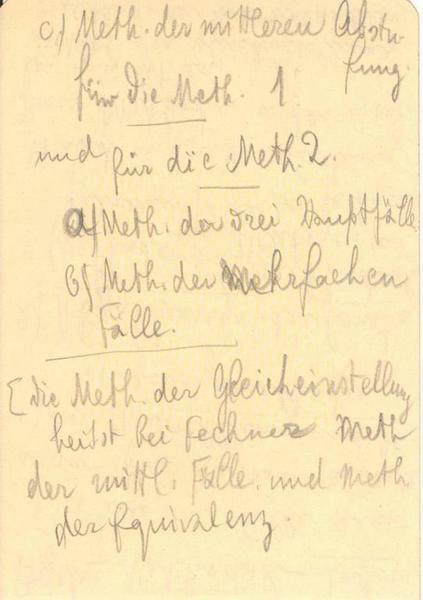 c) Meth. der mittleren Abstu-
fung.
für die Meth. 1
und für die Meth. 2.
a) Meth. der drei Hauptfälle
b) Meth. der Mehrfachen
Fälle.
[die Meth. der Gleicheinstellung
heißt bei Fechner Meth
der mittl. Fälle. und Meth.
der Equivalenz.